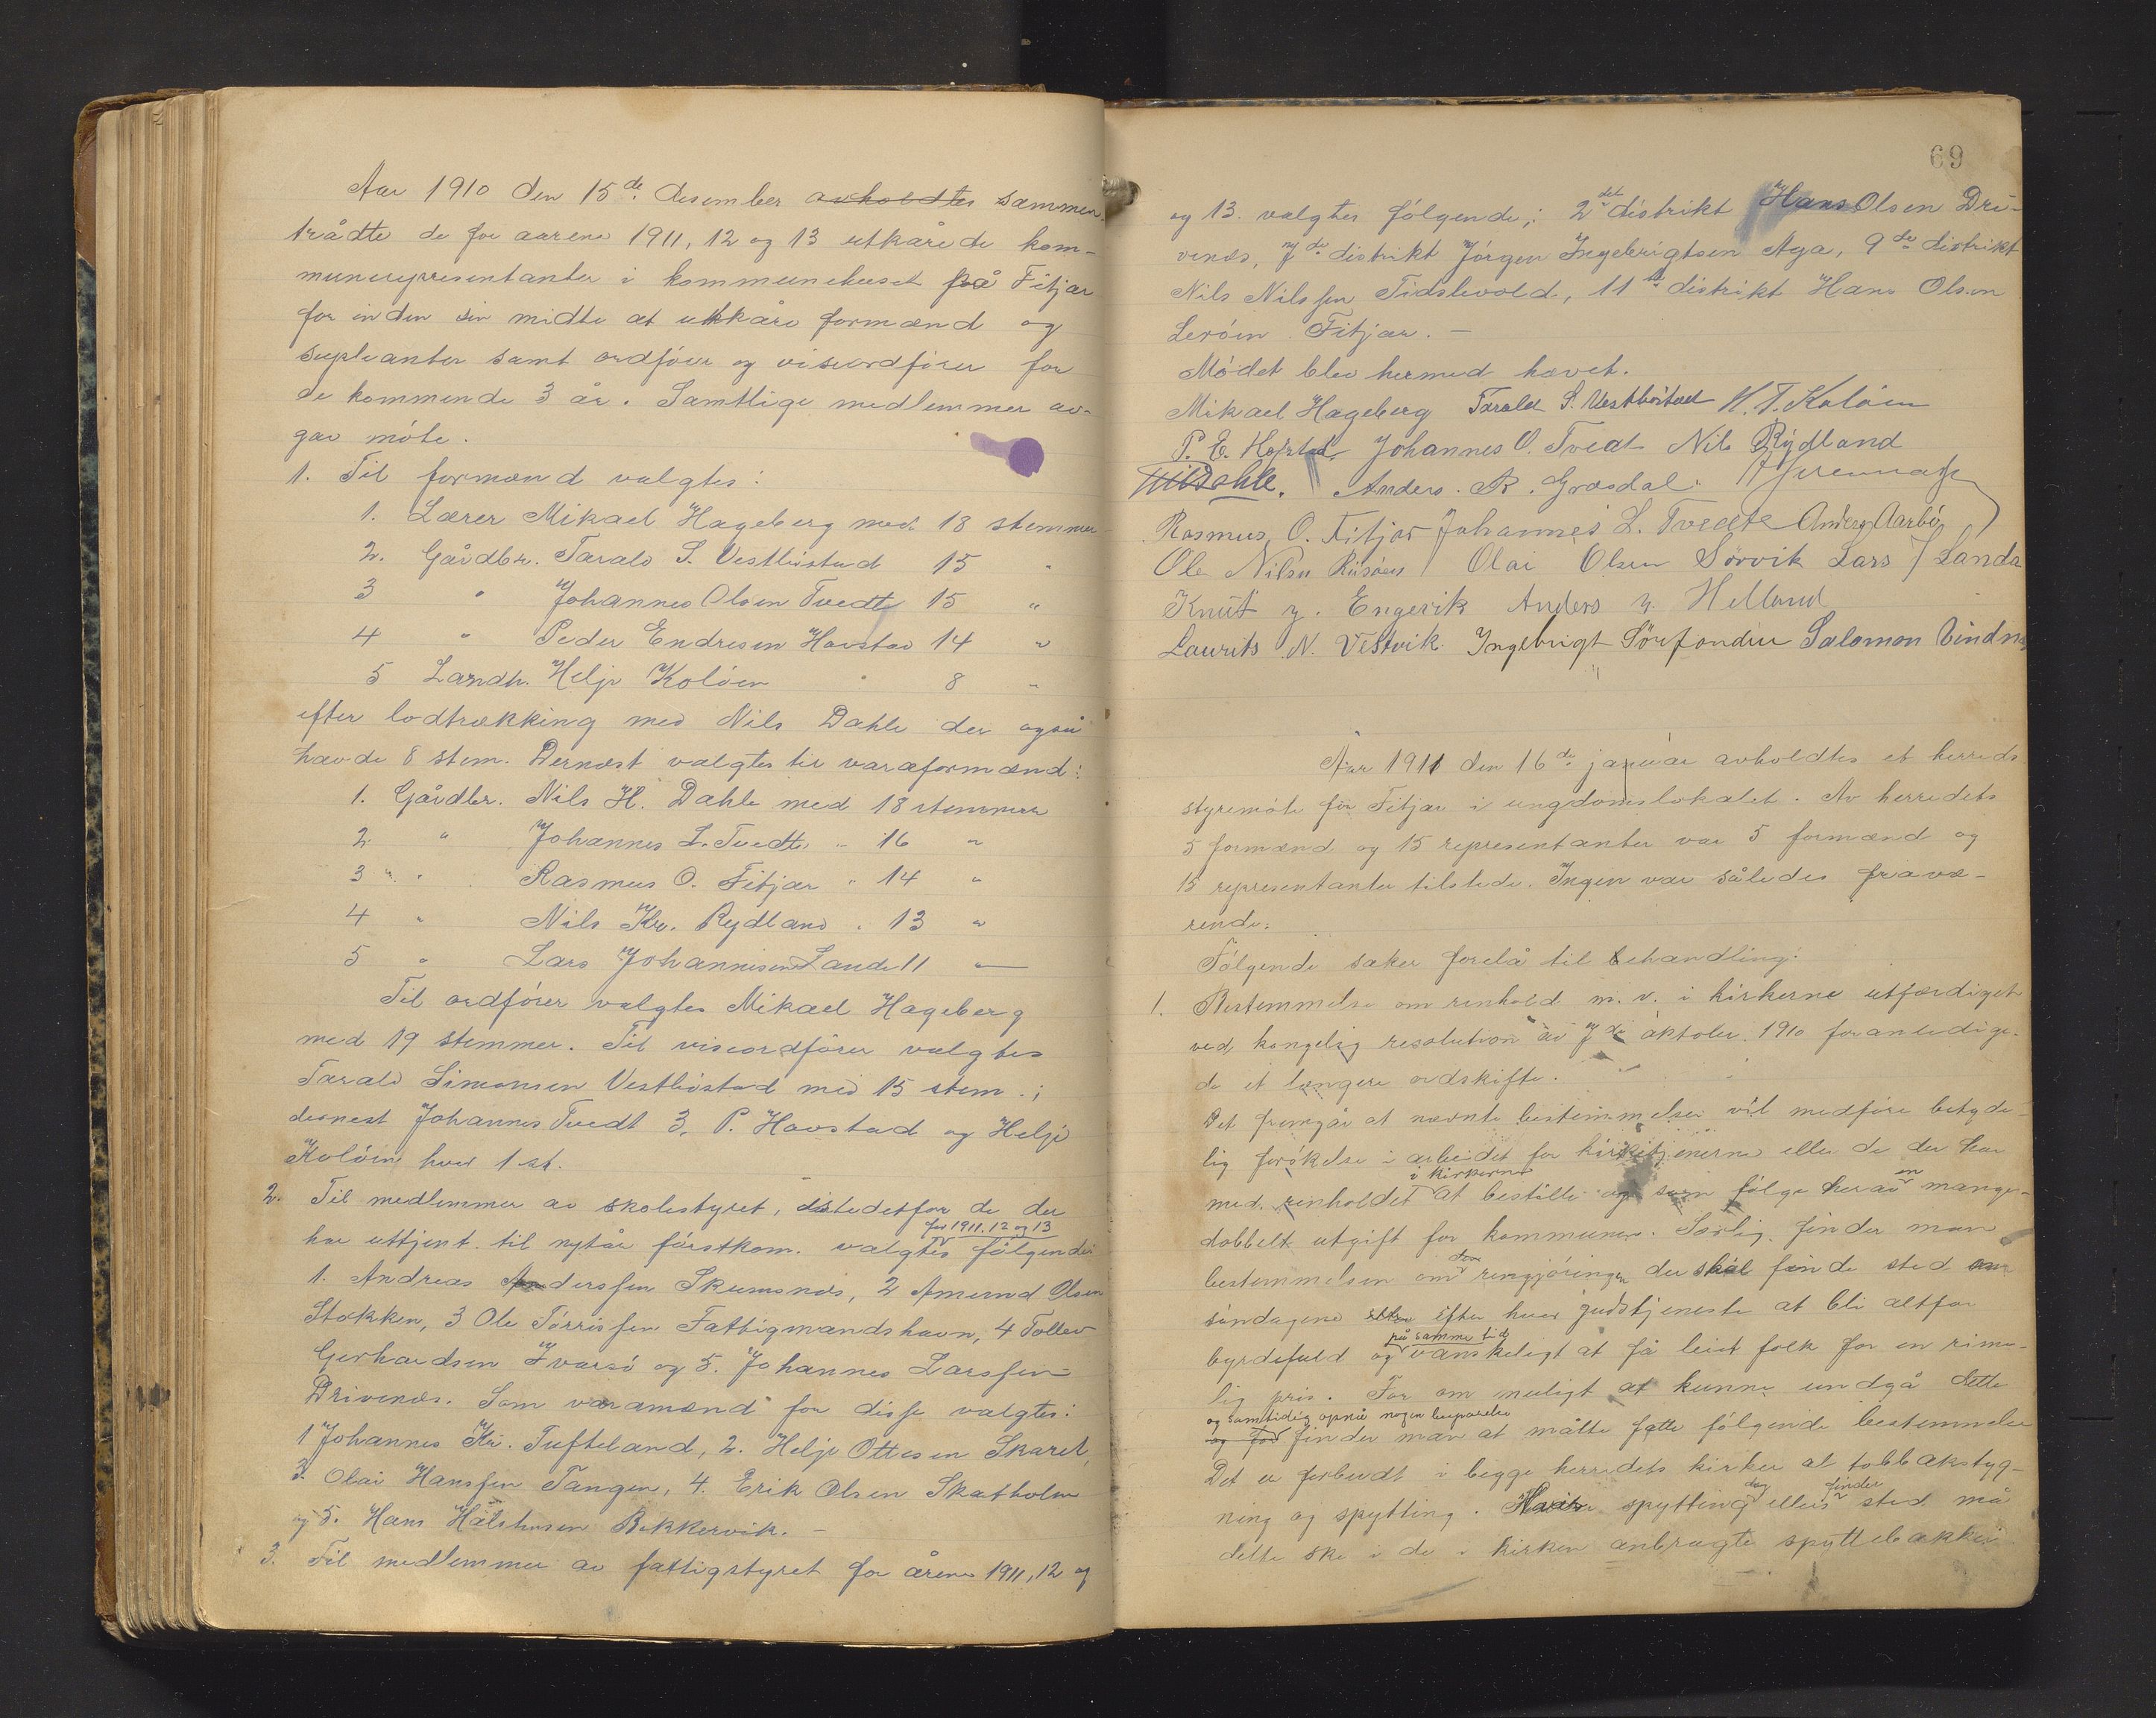 Aar 1910 den 15de desember avholdtes sammen-
trådte de for aarene 1911, 12 og 13 utkårede kom-
munerepresentanter i kommunehuset på Fitjar
for inden sin midte at utkåre formænd og
supleanter samt ordfører og viseordfører for
de kommende 3 år. Samtlige medlemmer av-
gav møte.
1. Til formænd valgtes:
1. Lærer Mikael Hageberg med 18 stemmer
2. Gårdbr. Tarald S. Vestbøstad 15 "
3 " Johannes Olsen Tvedte 15 "
4 " Peder Endresen Havstad 14 "
5 Landh. Helje Koløen 8 "
efter lodtrækking med Nils Dahle der også
havde 8 stem. Dernæst valgtes til varaformænd:
1. Gårdbr. Nils H. Dahle med 18 stemmer
2. " Johannes L. Tvedte " 16 "
3 " Rasmus O. Fitjar " 14 "
4 " Nils Kr. Rydland " 13 "
5 " Lars Johannesen Lande 11 "
Til ordfører valgtes Mikael Hageberg
med 19 stemmer. Til viseordfører valgtes
Tarald Simonsen Vestbøstad med 15 stem.;
dernest Johannes Tvedt 3, P. Havstad og Helje
Koløen hver 1 st.
2. Til medlemmer av skolestyret, istedetfor de der
for 1911, 12 og 13
har uttjent til nytår førstkom. valgtes følgende:
1. Andreas Anderssen Skumsnes, 2 Amund Olsen
Stokken, 3 Ole Tørrissen Fattigmandshavn, 4 Tollev
Gerhardsen Ivarsø og 5. Johannes Larssen
Drivenes. Som varamænd for disse valgtes:
1 Johannes Kr. Tufteland, 2. Helje Ottesen Skaret,
3. Olai Hanssen Tangen, 4. Erik Olsen Skatholm
og 5. Hans Bekkervik.
3. Til medlemmer av fattigstyret for årene 1911, 12 og
69
og 13. valgtes følgende: 2det distrikt Hans Olsen Dri-
venes, 7de distrikt Jørgen Ingebrigtsen Aga, 9de distrikt
Nils Nilssen Tidslevold, 11te distrikt Hans Olsen
Lerøen Fitjar. —
Mødet blev hermed hævet.
Mikael Hageberg Tarald S. Vestbøstad H. T. Koløen
P. E. Hafstad Johannes O. Tvedt Nils Rydland
Dahle. Anders R. Grøsdal.
Rasmus O. Fitjar Johannes L. Tvedte Anders Aarbø
Ole Nilsen Risøen Olai Olsen Sørvik Lars J Landa
Knut Engevik Anders Helland
Laurits N. Vestvik. Ingebrigt Sørfonden Salomon
Aar 1911 den 16de januar avholdtes et herreds
styremøte for Fitjar i ungdomslokalet. Av herredets
5 formænd og 15 representanter var 5 formænd og
15 representanter tilstede. Ingen var således fravæ-
rende.
Følgende saker forelå til behandling:
1. Bestemmelse om renhold m. v. i kirkerne utfærdiget
ved kongelig resolution av 7de oktober 1910 foranledige-
de et længere ordskifte.
Det fremgår at nævnte bestemmelser vil medføre betyde-
lig forøkelse i arbeidet for kirketjenerne eller de der har
i kirkerne en
med renholdet at bestille og som følge herav mange-
dobbelt utgift for kommunen. Særlig finder man
den
bestemmelsen om rengjøringen der skal finde sted om
søndagene efter hver gudstjeneste at bli altfor
på samme tid
byrdefuld og vanskeligt at få leiet folk for en rime-
lig pris. For om muligt at kunne undgå dette
og samtidig opnå nogen besparelse
og for finder man at måtte fatte følgende bestemmelse
Det er forbudt i begge herredets kirker al tobbakstyg-
dog finder
ning og spytting. Hvis spytting ellers sted må
dette ske i de i kirken anbragte spyttebakker